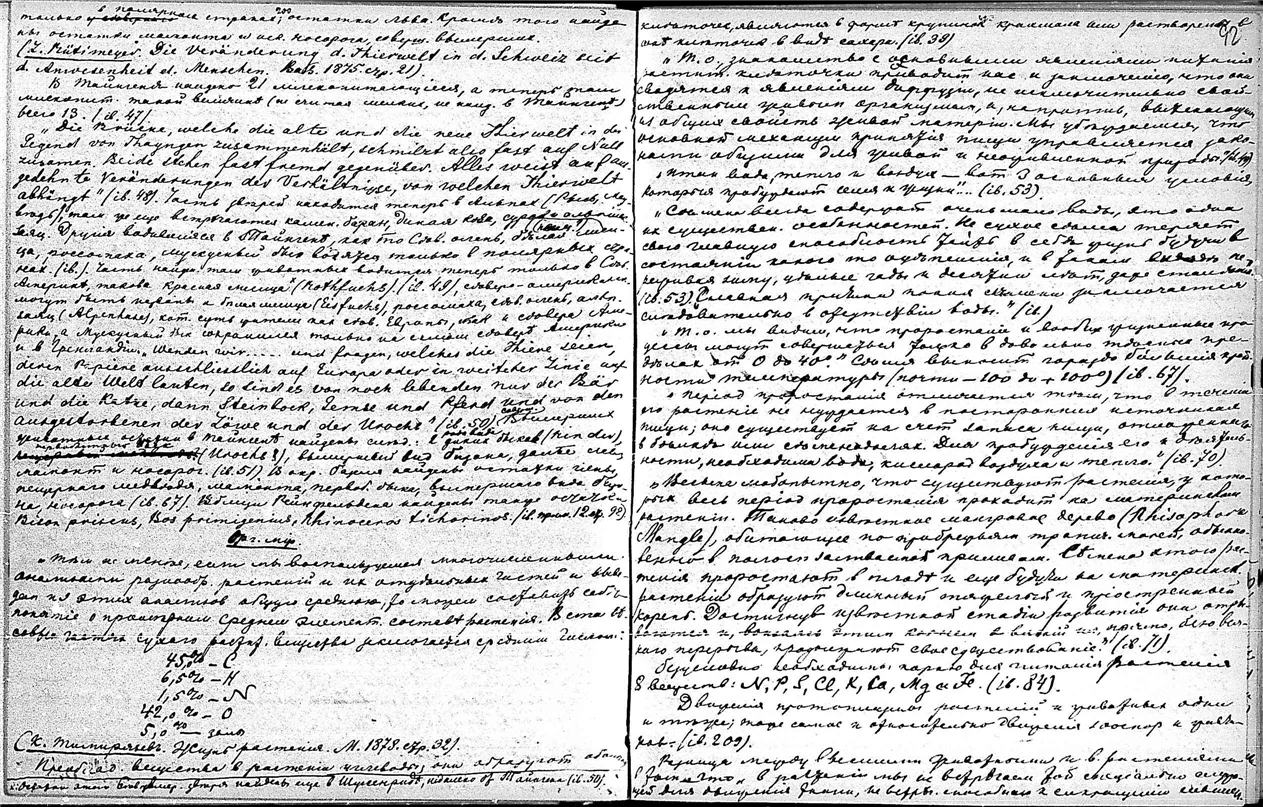 в полярныхъ
только странахъ, остатки льва. Кромѣ того найде-
ны остатки мамонта и иск. носорога, совсѣм. вымершіе.
(L. Rütimeyer. Die Veränderung d. Thierwelt in d. Schweiz seit
d. Anwesenheit d. Menschen. 1875. стр. 21)
В Тайнгенѣ найдено 21 млекопитающееся, а теперь там
млекопит. такой величины (не считая мелких, не найд. в Тайнгенѣ)
всего 13. (ib. 47).
„Die Brücke, welche die alte und die neue Thierwelt in der
Gegend von Thayngen zusammenhält, schmilzt also fast auf Null
zusamen. Beide stehen fast fremd gegenüber. Alles weist auf aus-
gedehnte Veränderungen des Verhältnisse, von welchen Thierwelt
abhängt" (ib. 48). Часть звѣрей находится теперь в Альпах (Рысь, Мед-
вѣдь), там же еще встрѣчаются камен. баран, дикая коза,
заяц. Другія водившіяся в Тайнгенѣ, как то Сѣв. олень,
ца, россомаха, мускусный бык водятся только в полярных стра-
нах. (ib.). Часть найд. там животных водится теперь только в Сѣв.
Америкѣ, такова красная лисица (Rothfuchs). (ib. 49),
могут быть названы и бѣлая лисица (Eisfuchs), россомаха, сѣв. олень, альп.
заяц (Alpenhase), кот. суть жители как сѣв. Европы, так и сѣвера Аме-
рики, а Мускусный бык сохранился только на сѣверѣ Америки
и в Гренландіи. „Wenden wir ..... und fragen, welches die Thiere seien,
deren Repiere ausschliesslich auf Europa oder in weitcher Linie auf
die alte Welt lauten, so sind es von noch lebenden nur der Bär
und die Katze, dann Steinbock, Gemse und Pferd und von den
ausgestorbenen der Löwe und der Urochs" (ib. 50). Вымерших
животных в Тайнгенѣ найдены: диких быков (Rinder),
(Urochs), вымерший вид барана, далѣе
мамонт и носорог. (ib. 51). В окр. Базеля найдены остатки гіены,
пещернаго медвѣдя, мамонта, первоб. быка, вымершаго вида бара-
на, носорога (ib. 67). Вблизи Рейнфельдена найдены также остатки
Bison priscus, Bos primigenius, Rhinoceros tichorinos. (ib. прим. 12 стр. 92)
Орг. мір.
„Тѣм не менѣе, если мы воспользуемся многочисленными
анализами разнообр. растений и их отдѣльных частей и выве-
дем из этих анализов общую среднюю, то можем составить себѣ
понятіе о примѣрном среднем элемент. составѣ растенія. В ста вѣ-
совых частях сухого растит. вещества заключается средним числом:
45,0% – C
6,5% – H
1,5% – N
42,0% – O
5,0% – золы
(К. Тимирязевъ. Жизнь растения. М. 1878. стр. 32).
Преоблад. вещества в растеніи углеводы; они образуют
(ib. 50).
92
клѣточек, являются в формѣ крупинок крахмала или растворены в
клѣточек в видѣ сахара. (ib. 39)
„Т. о., знакомство с основными явленіями питанія
растит. клѣточки приводит нас к заключенію, что они
сводятся к явленіям диффузіи, не исключительно свой-
ственным живым организмам, а, напротив, вытекающим
из общих свойств всякой матеріи. Мы убѣждаемся, что
основной механизм принятія пищи управляется зако-
нами общими для живой и неоживленной природы." (ib. 49)
„Итак вода, тепло и воздух – вот 3 основныя условія,
которыя пробуждают семя к жизни"... (ib. 53)
„Сѣмена всегда содержат очень мало воды, это одна
из существен. особенностей. Но сухое сѣмя теряет
свою главную способность таить в себѣ жизнь будучи в
состояніи какого то оцѣпенѣнія, и в таком видѣ пе-
реживать зиму, цѣлые годы и десятки лѣт, даже столѣтія
(ib. 53). Главная причина покоя сѣмени заключается
слѣдовательно в отсутствіи воды." (ib.)
„Т. о. мы видим, что проростаніе и вообще жизненные про-
цессы могут совершаться только в довольно тѣсных пре-
дѣлах от 0 до 40°." Сѣмя выносит гораздо большія край-
ности температуры (почти – 100 до + 100°) (ib. 67).
„Період проростанія отличается тѣм, что в теченіи
его растеніе не нуждается в посторонних источниках
пищи; оно существует на счет запаса пищи, отложеннаго
в бѣлкѣ или сѣмянодолях. Для пробужденія его к дѣятель-
ности, необходимы вода, кислород воздуха и тепло." (ib. 70).
„Весьма любопытно, что существуют растенія, у кото-
рых весь період проростанія проходит на материнском
растеніи. Таково извѣстное мангровое дерево (Rhisophora
Mangle), обитающее по прибрежьям тропич. морей, обыкно-
венно в полосѣ затопляемой приливом. Сѣмена этого рас-
тенія проростают в плодѣ и еще будучи на материнск.
растеніи образуют длинный отвѣсный и простертый
корень. Достигнув извѣстной стадіи развитія они отры-
ваются и, вонзаясь этим корнем в вязкій ил, прочно, безо вся-
каго перерыва, продолжают свое существованіе." (ib. 71).
Безусловно необходимы корню для питанія растенія
8 веществ: N, P, S, Cl, K, Ca, Mg и Fe. (ib. 84).
Движенія протоплазмы растеній и животных одни
и тѣже; тоже самое и относительно движенія зооспор и живч-
ков. (ib. 209).
Разница между высшими животными и в. растеніями
в растеніи мы не встрѣчаем